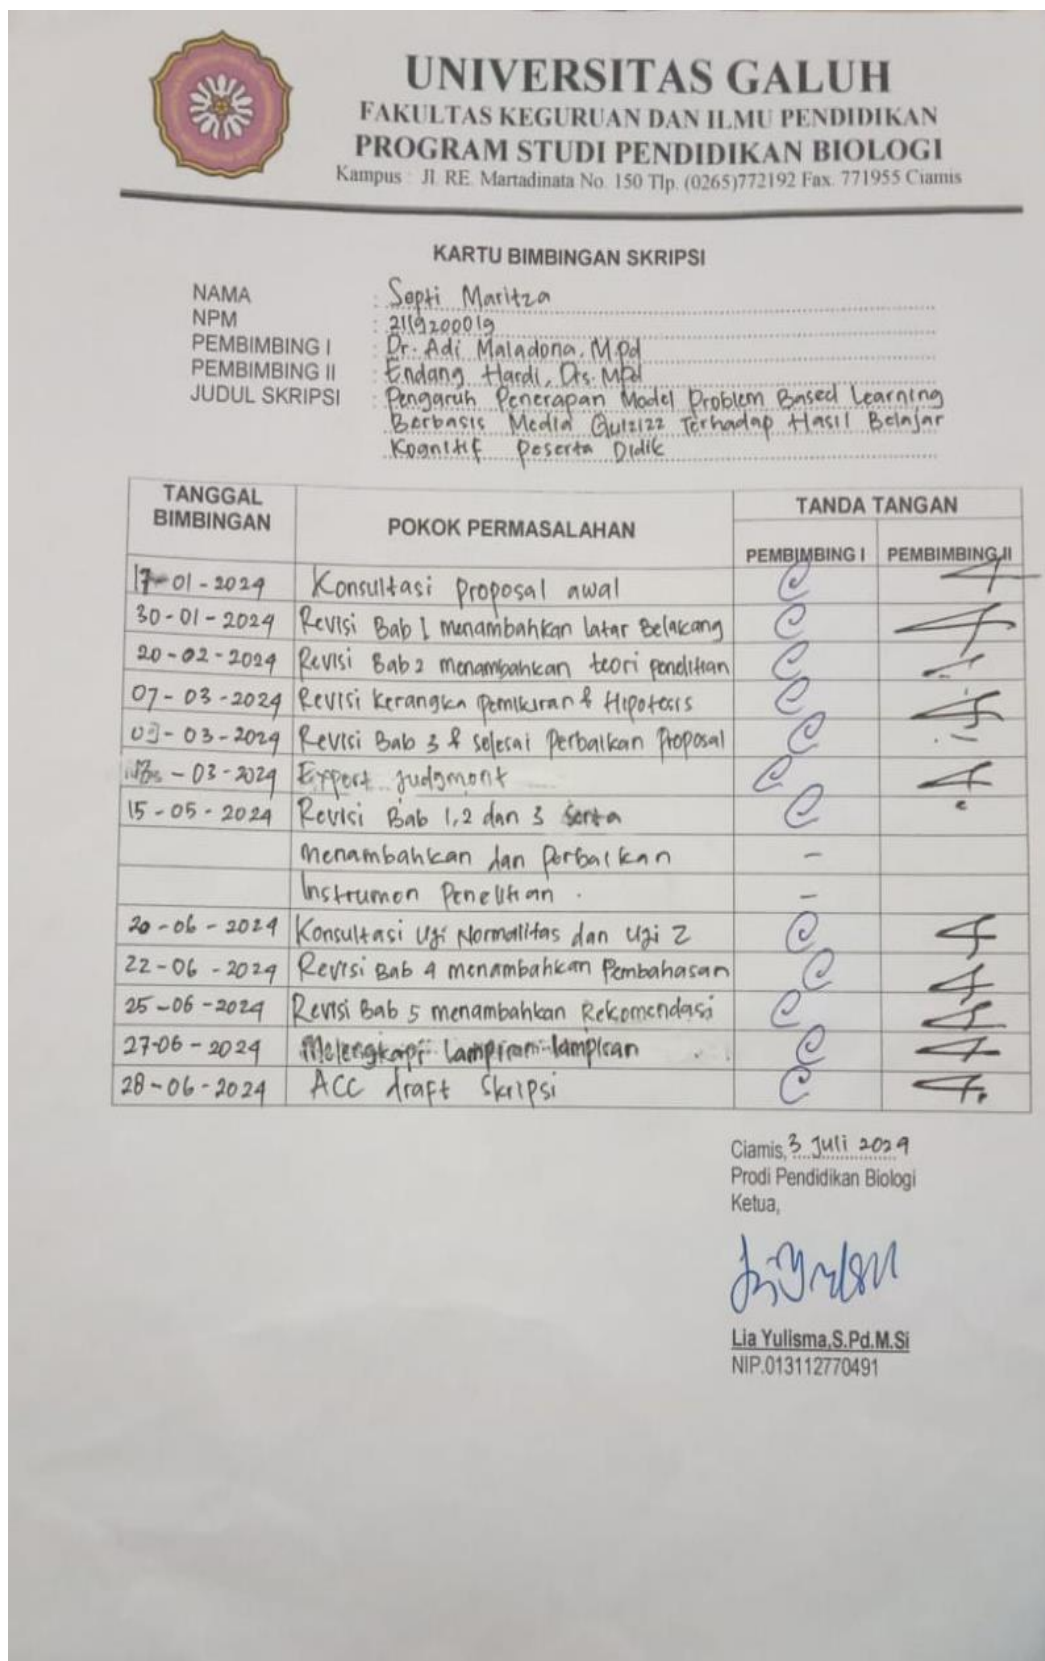 UNIVERSITAS GALUH
FAKULTAS KEGURUAN DAN ILMU PENDIDIKAN
PROGRAM STUDI PENDIDIKAN BIOLOGI
Kampus : Jl. RE. Martadinata No. 150 Tlp. (0265)772192 Fax. 771955 Ciamis
KARTU BIMBINGAN SKRIPSI
NAMA : Septi Maritza
NPM : 2119200019
PEMBIMBING I : Dr. Adi Maladona, M.Pd
PEMBIMBING II : Endang Hardi, Drs. MPd
JUDUL SKRIPSI : Pengaruh Penerapan Model Problem Based Learning
Berbasis Media Quizizz Terhadap Hasil Belajar
Kognitif Peserta Didik
TANGGAL BIMBINGAN POKOK PERMASALAHAN TANDA TANGAN
PEMBIMBING I PEMBIMBING II
17-01-2024 Konsultasi proposal awal
30-01-2024 Revisi Bab 1 menambahkan latar Belakang
20-02-2024 Revisi Bab 2 menambahkan teori penelitian
07-03-2024 Revisi Kerangka Pemikiran & Hipotesis
-03-2024 Revisi Bab 3 & selesai Perbaikan Proposal
-03-2024 Expert judgment
15-05-2024 Revisi Bab 1,2 dan 3 serta
menambahkan dan perbaikan -
Instrumen Penelitian. -
20-06-2024 Konsultasi Uji Normalitas dan Uji Z
22-06-2024 Revisi Bab 4 menambahkan Pembahasan
25-06-2024 Revisi Bab 5 menambahkan Rekomendasi
27-06-2024 Melengkapi Lampiran-lampiran
28-06-2024 ACC draft Skripsi
Ciamis, 3 Juli 2024
Prodi Pendidikan Biologi
Ketua,
Lia Yulisma,S.Pd.M.Si
NIP.013112770491